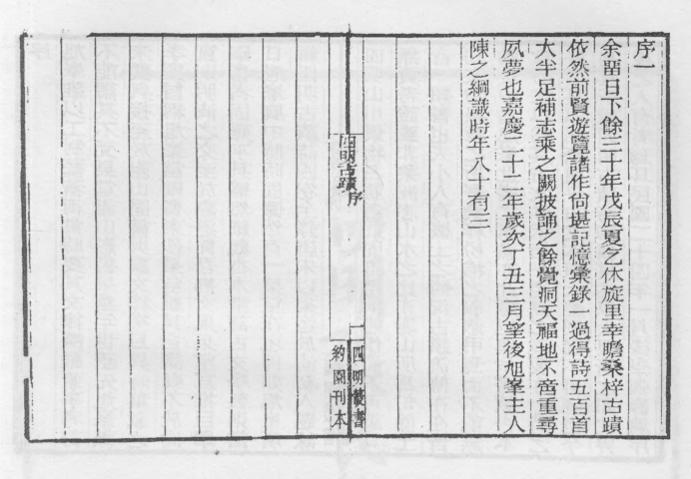 序一
余留日下餘三十年戊辰夏乞休旋里幸瞻桑梓古蹟
依然前賢遊覽諸作尙堪記憶彙錄一過得詩五百首
大半足補志乘之闕披誦之餘覺洞天福地不啻重尋
夙夢也嘉慶二十二年歲次丁丑三月望後旭峯主人
陳之綱識時年八十有三
四明古蹟序
一
四明叢書
約園刊本